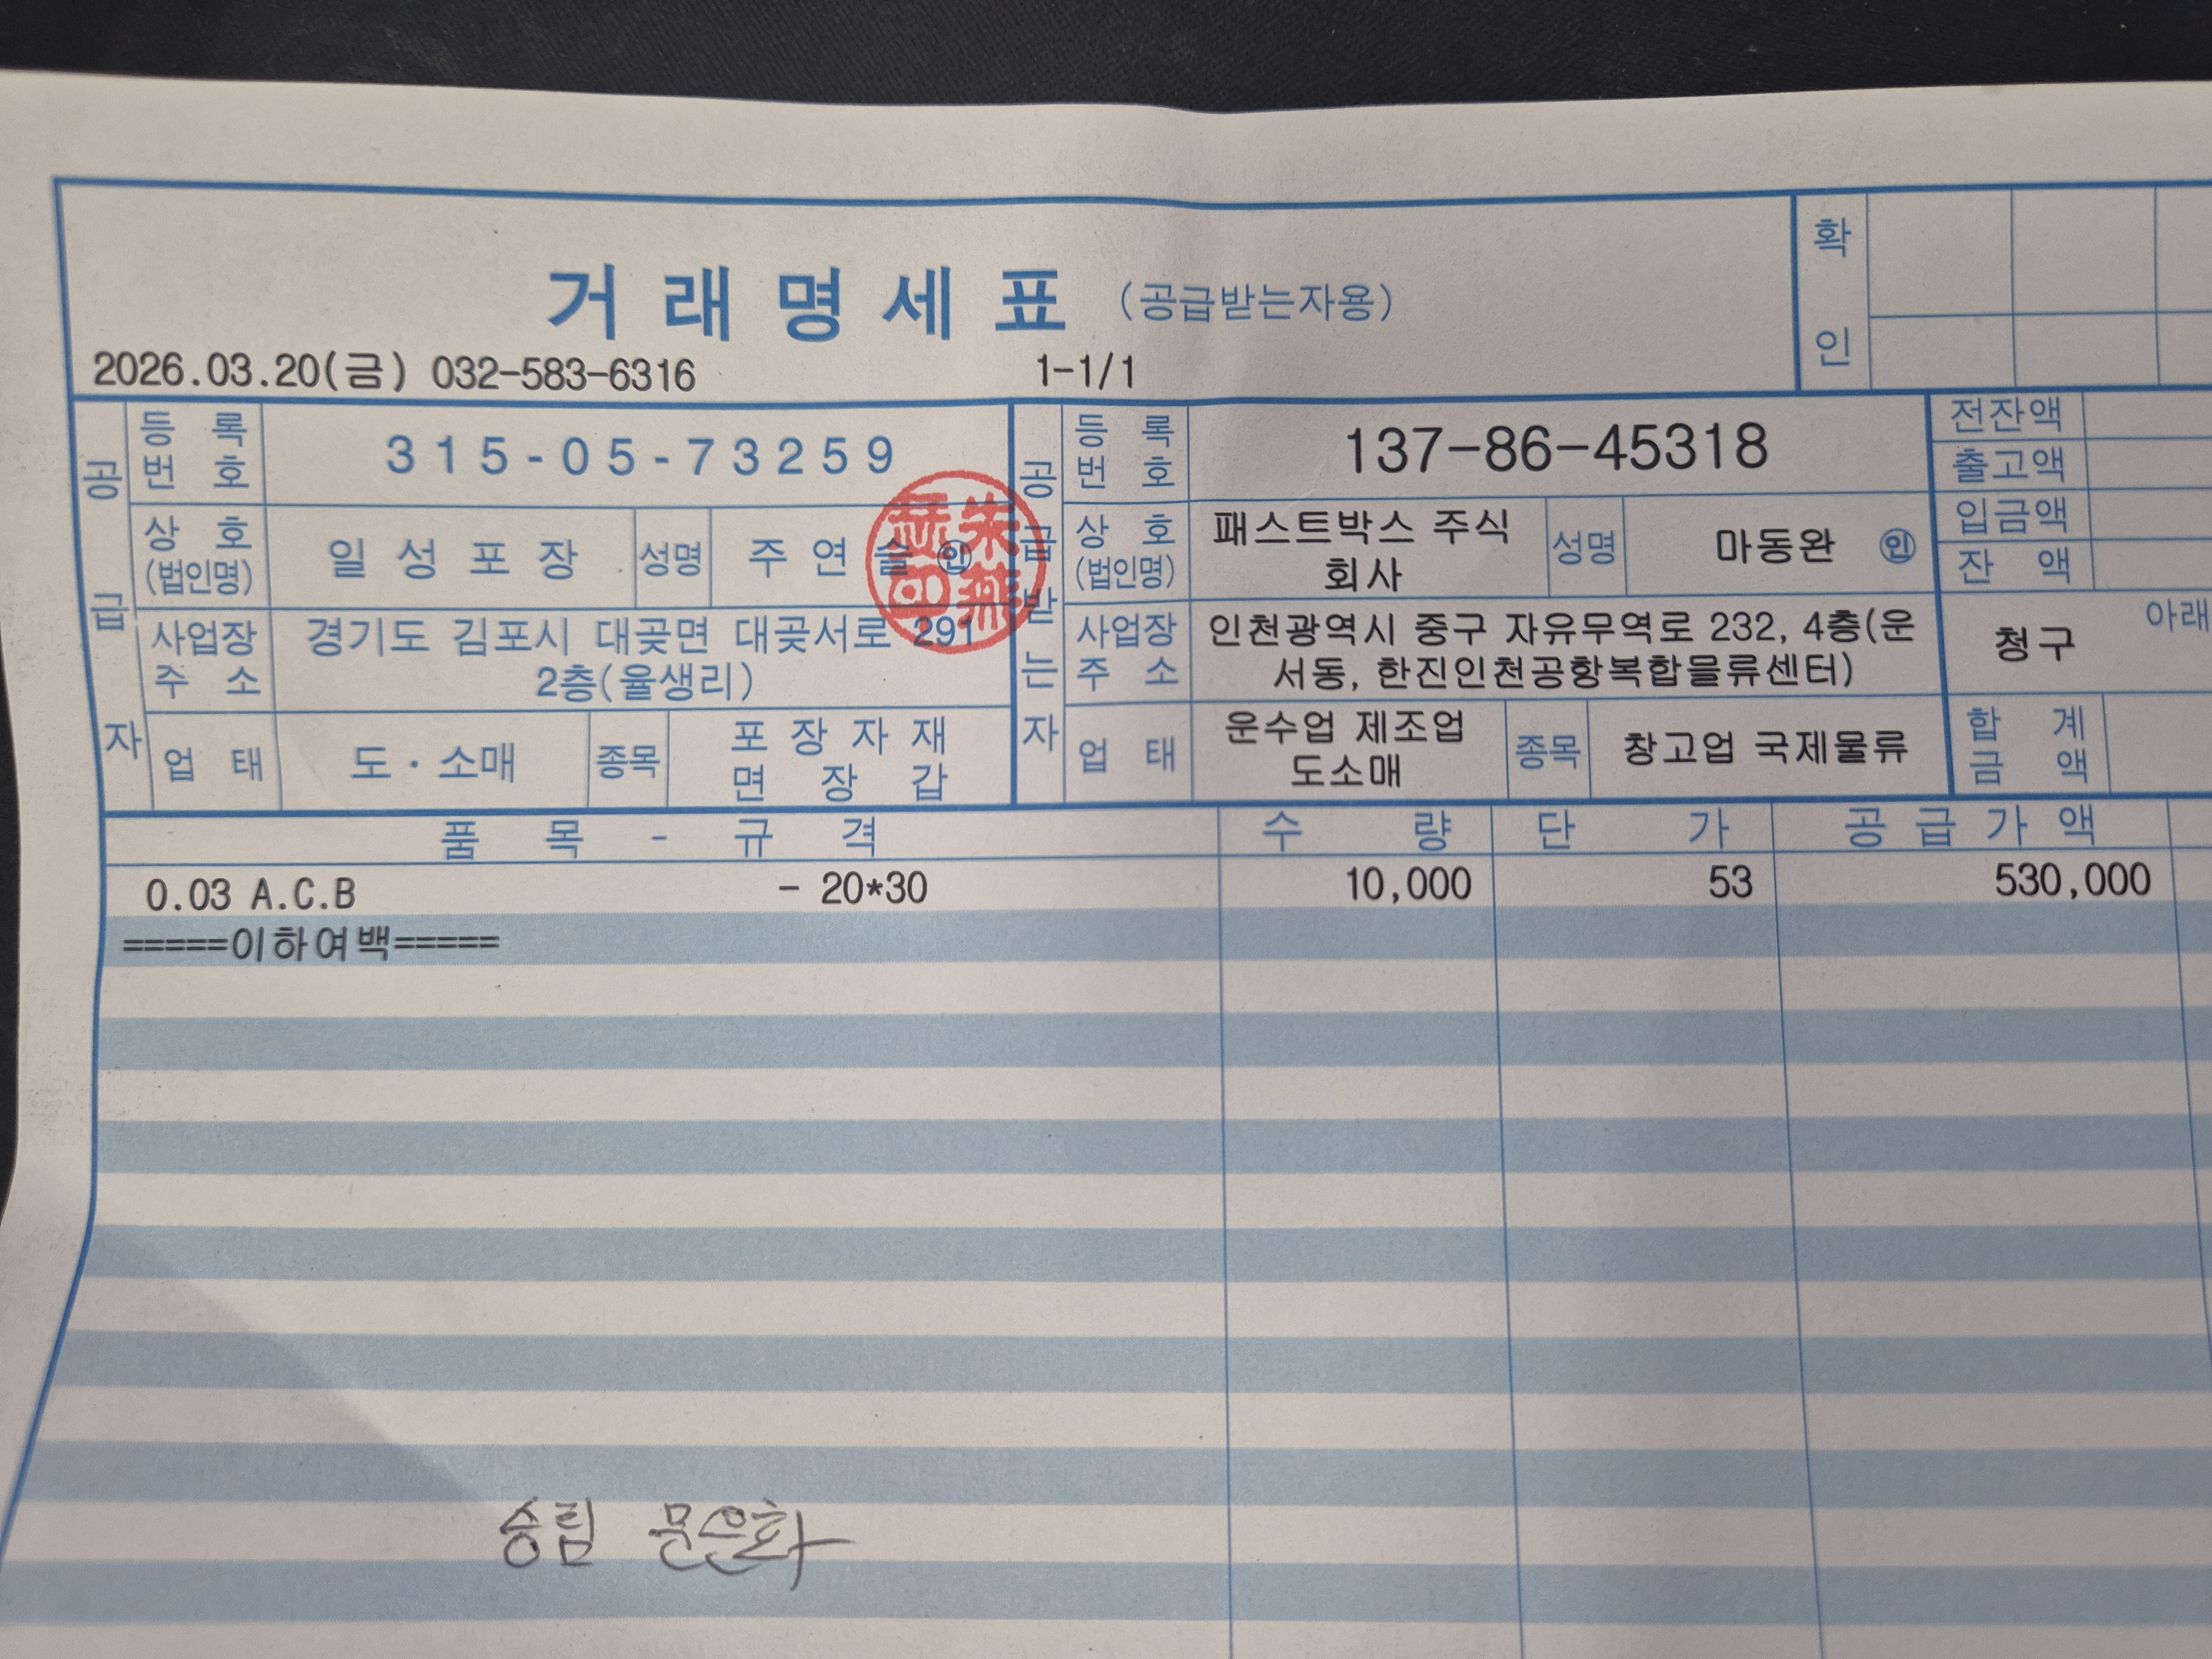 거래명세표 (공급받는자용)
확인
2026.03.20(금) 032-583-6316 1-1/1
공급자
등록번호 315-05-73259
상호(법인명) 일성포장 성명 주연술 인
사업장주소 경기도 김포시 대곶면 대곶서로 291
2층(율생리)
업태 도·소매 종목 포장자재
면장갑
공급받는자
등록번호 137-86-45318
상호(법인명) 패스트박스 주식
회사 성명 마동완 인
사업장주소 인천광역시 중구 자유무역로 232, 4층(운
서동, 한진인천공항복합물류센터)
업태 운수업 제조업
도소매 종목 창고업 국제물류
전잔액
출고액
입금액
잔액
청구 아래
합계금액
품목-규격 수량 단가 공급가액
0.03 A.C.B - 20*30 10,000 53 530,000
=====이하여백=====
승림 문은화